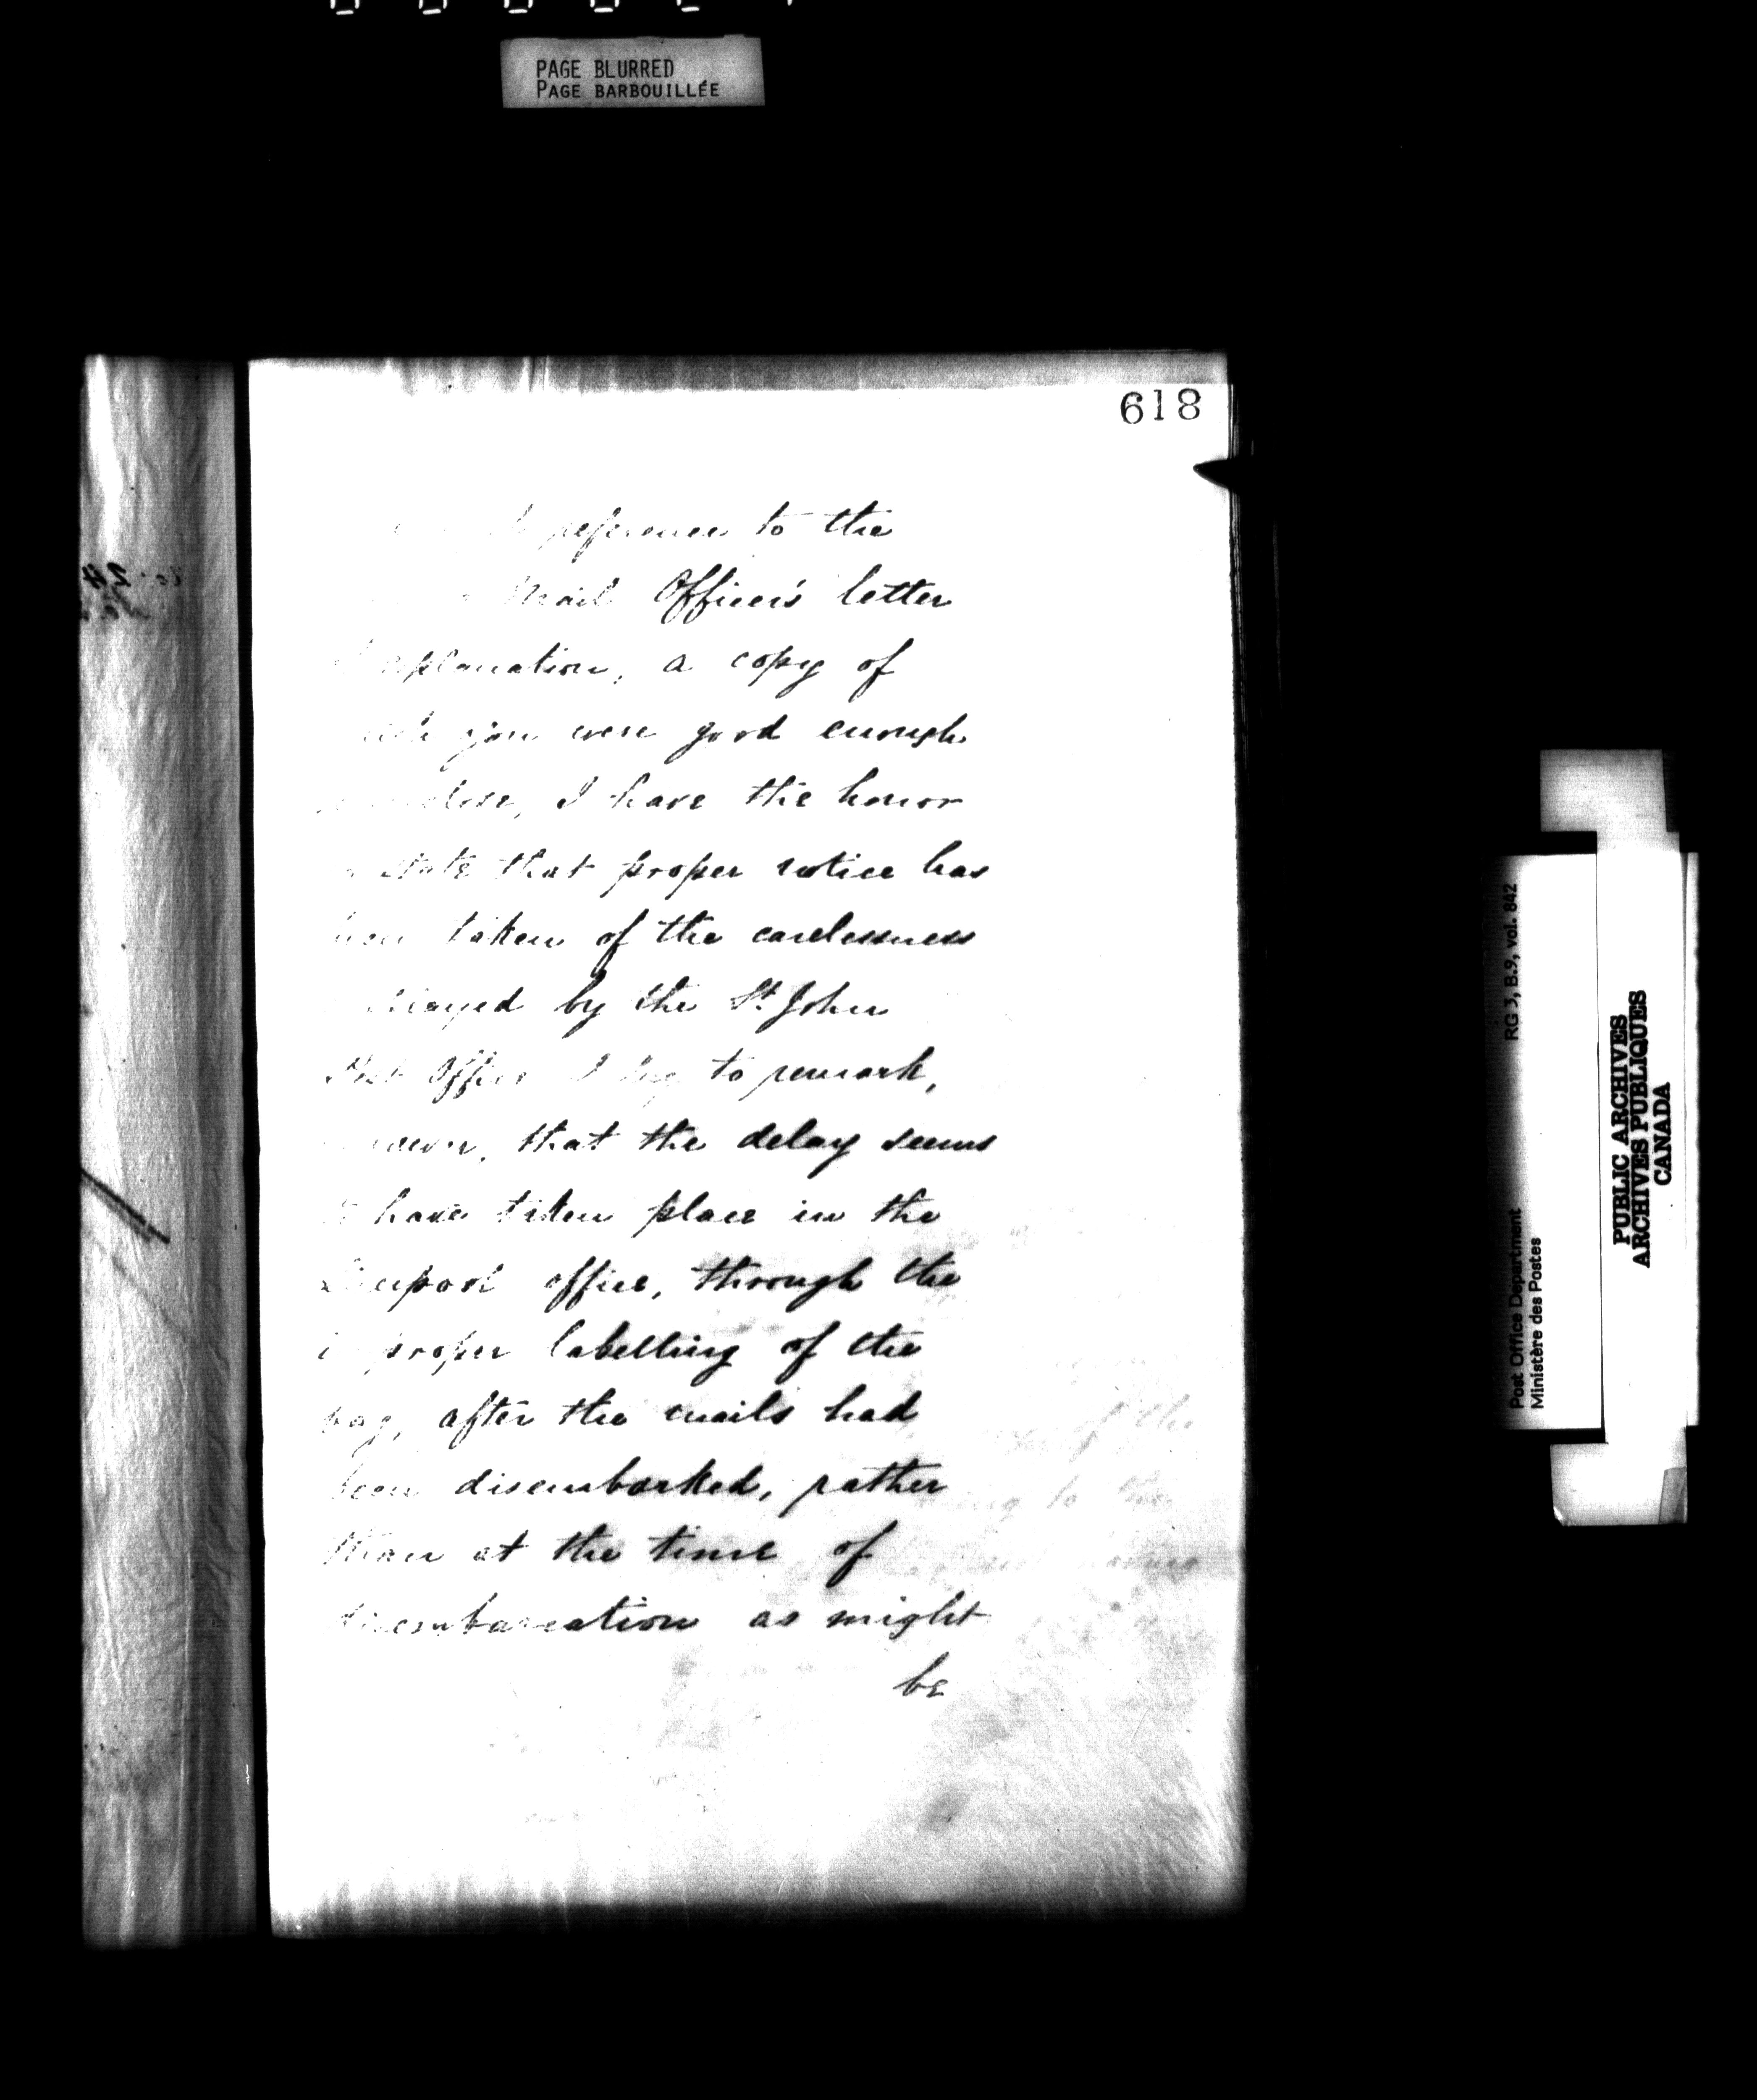 PAGE BLURRED
PAGE BARBOUILLÉE
618
reference to the
Mail Officer's letter
explanation, a copy of
you were good enough
I have the honor
state that proper notice has
been taken of the carelessness
by the St. John
Post Office I beg to remark,
that the delay seems
to have taken place in the
Liverpool office, through the
improper labelling of the
bag, after the mails had
been disembarked, rather
than at the time of
disembarcation as might
be
of the
to the
RG 3, B.9, vol. 842
Post Office Department
Ministère des Postes
PUBLIC ARCHIVES
ARCHIVES PUBLIQUES
CANADA